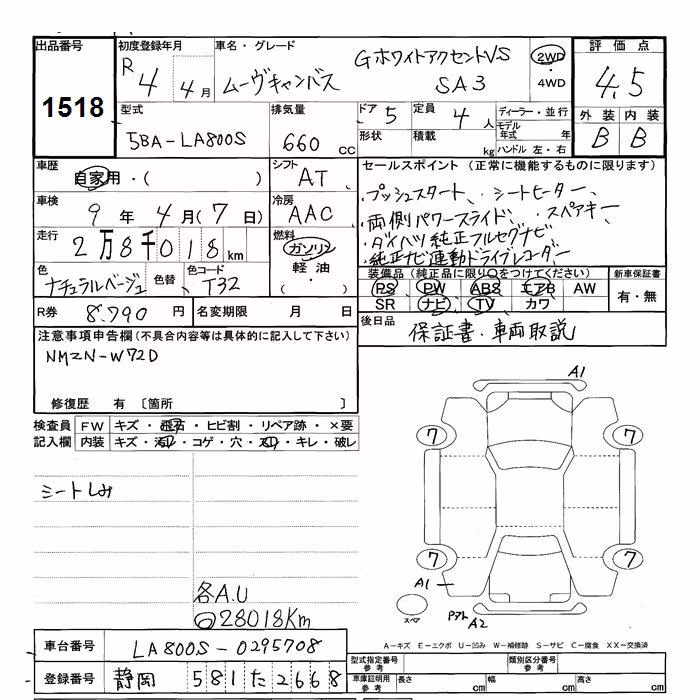 出品番号 初度登録年月 車名・グレード 評価点
1518 R4 4月 ムーヴキャンバス GホワイトアクセントVS SA3 2WD・4WD 4.5
型式 排気量 ドア 5 定員 4人 ディーラー・並行 外装 内装
5BA-LA800S 660cc 形状 積載 kg モデル年式 年 ハンドル 左・右 B B
車歴 自家用・( ) シフト AT セールスポイント (正常に機能するものに限ります)
車検 9年4月(7日) 冷房 AAC
・プッシュスタート、・シートヒーター、
・両側パワースライド、・スペアキー
・ダイハツ純正フルセグナビ
・純正ナビ連動ドライブレコーダー
走行 2万8千018km 燃料 ガソリン 軽油・( )
色 ナチュラルベージュ 色替 色コード T32
装備品 (純正品に限り○をつけてください) 新車保証書
PS PW ABS エアB AW 有・無
SR ナビ TV カワ
R券 8,790円 名変期限 月 日
後日品 保証書・車両取説
注意事項申告欄(不具合内容等は具体的に記入して下さい)
NMZN-W72D
修復歴 有 〔箇所 〕
検査員 FW キズ・飛石・ヒビ割・リペア跡・×要
記入欄 内装 キズ・汚れ・コゲ・穴・スレ・キレ・破レ
シートしみ
A1
7 7
7 7
A1
スペア
A2
各A.U
28018Km
A-キズ E-エクボ U-凹み W-補修跡 S-サビ C-腐食 XX-交換済
車台番号 LA800S-0295708
型式指定番号 参考 類別区分番号 参考
登録番号 静岡 581 た 2668
車庫証明用 参考 長さ cm 幅 cm 高さ cm